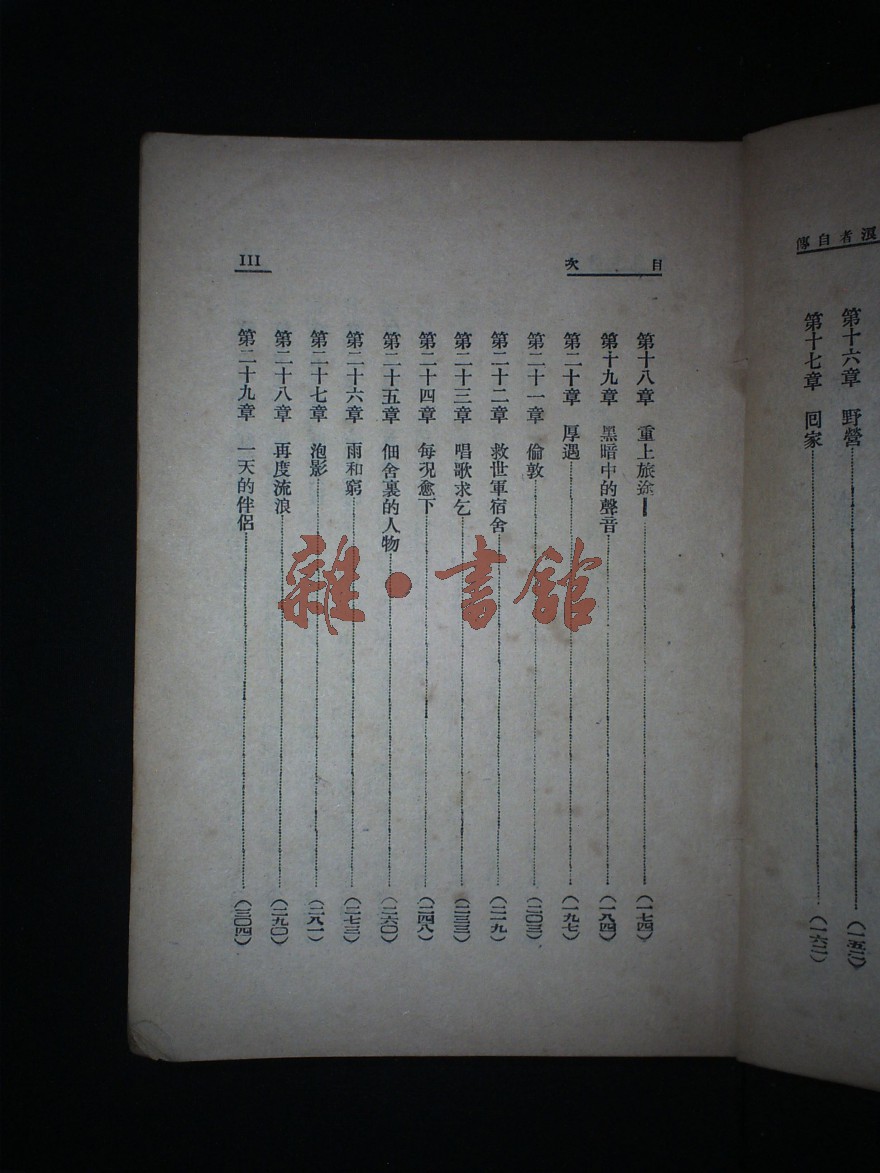 傳自者浪
第十六章 野營(一五二)
第十七章 回家(一六二)
目次
III
第十八章 重上旅途(一七四)
第十九章 黑暗中的聲音(一八四)
第二十章 厚遇(一九七)
第二十一章 倫敦(二〇三)
第二十二章 救世軍宿舍(二一九)
第二十三章 唱歌求乞(二三三)
第二十四章 每況愈下(二四八)
第二十五章 佃舍裏的人物(二六〇)
第二十六章 雨和窮(二七三)
第二十七章 泡影(二八一)
第二十八章 再度流浪(二九〇)
第二十九章 一天的伴侶(三〇四)
雜·書館